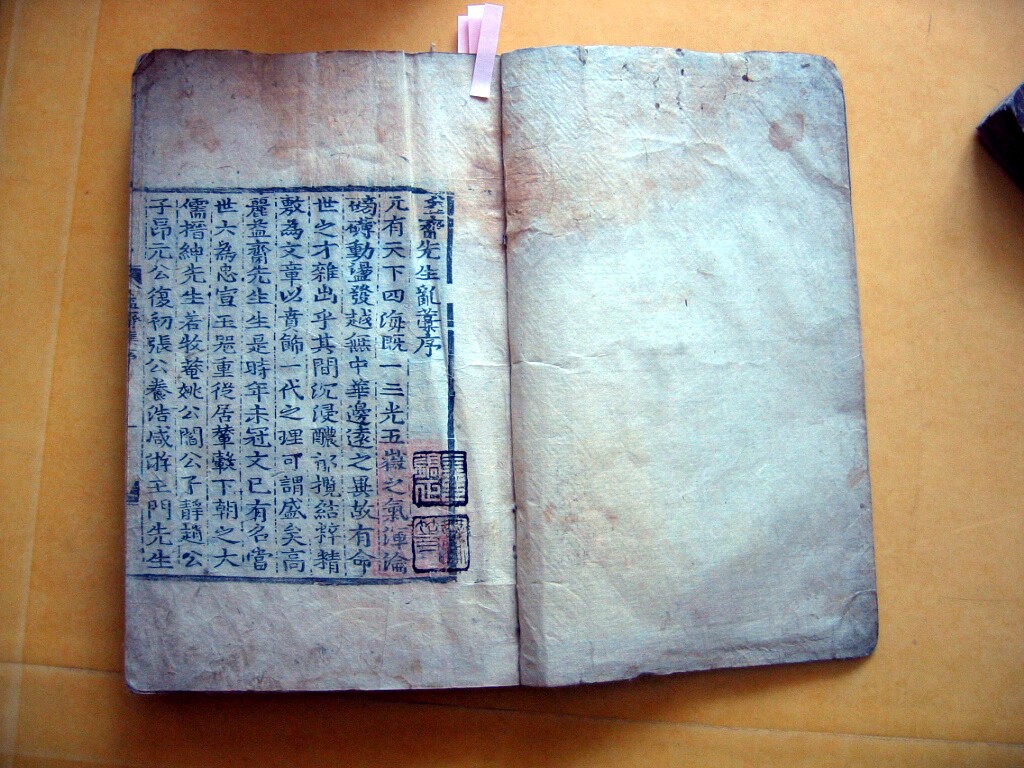 益齋先生亂藁序
元有天下四海既一三光五嶽之氣渾淪
磅礴動盪發越無中華邊遠之異故有命
世之才雜出乎其間沉浸醲郁攬結粹精
敷為文章以賁飾一代之理可謂盛矣高
麗益齋先生生是時年未冠文已有名當
世大為忠宣王器重從居輦轂下朝之大
儒搢紳先生若牧菴姚公閻公子靜趙公
子昂元公復初張公養浩咸游王門先生
益齋集序